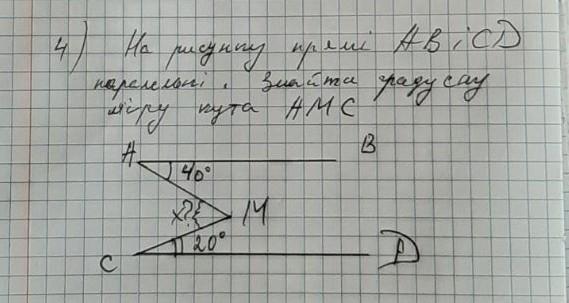 4) На рисунку прямі AB i CD
паралельні. Знайти градусну
міру кута AMC
A B
40°
x? M
20°
C D